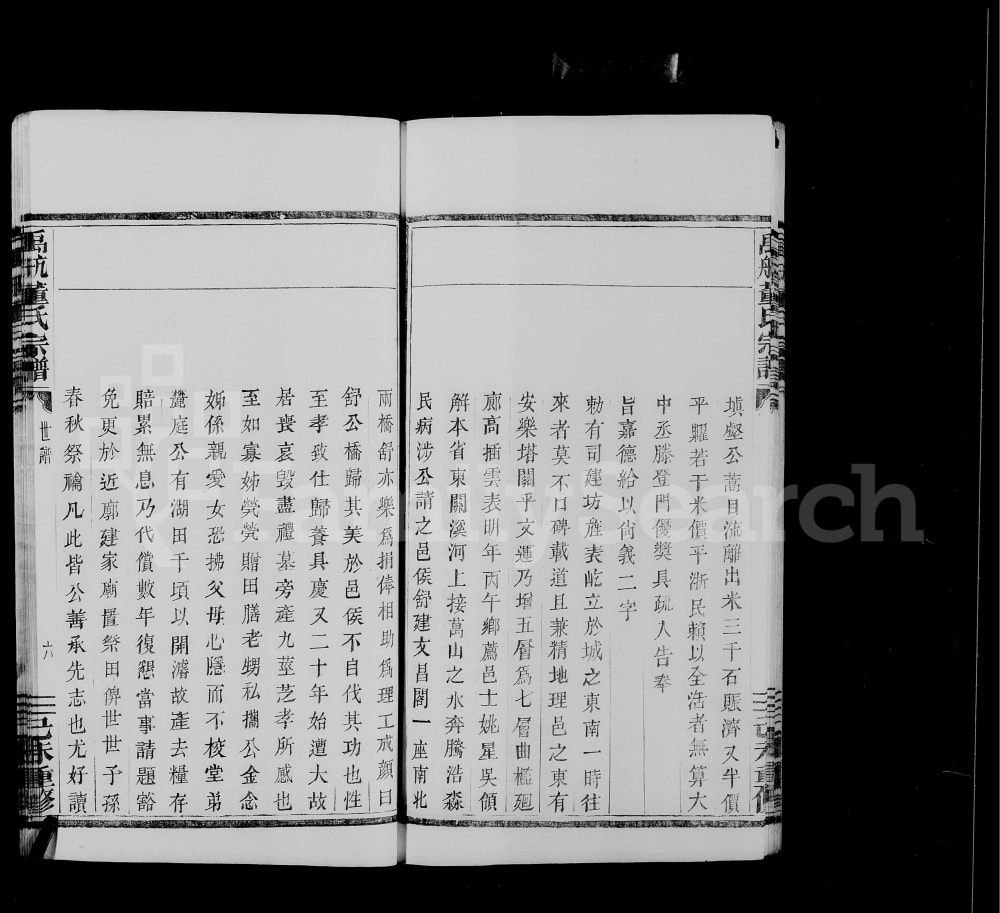 禹航董氏宗譜
填壑公蒿目流離出米三千石賑濟又半價
平糶若干米價平浙民賴以全活者無算大
中丞滕登門優獎具疏入告奉
旨嘉德給以尙義二字
勅有司建坊旌表屹立於城之東南一時往
來者莫不口碑載道且兼精地理邑之東有
安樂塔關乎文運乃增五層爲七層曲檻廻
廊高插雲表明年丙午鄉薦邑士姚星吳領
解本省東關溪河上接萬山之水奔騰浩淼
民病涉公請之邑侯舒建文昌閣一座南北
兩橋舒亦樂爲捐俸相助爲理工成顏曰
舒公橋歸其美於邑侯不自伐其功也性
至孝致仕歸養具慶又二十年始遭大故
居喪哀毀盡禮墓旁產九莖芝孝所感也
至如寡姊煢煢贈田膳老甥私攜公金念
姊係親愛女恐拂父母心隱而不校堂弟
麓庭公有湖田千頃以開濬故產去糧存
賠累無息乃代償數年復懇當事請題豁
免更於近廓建家廟置祭田俾世世子孫
春秋祭禴凡此皆公善承先志也尤好讀
禹航董氏宗譜
世譜
六
己未重修
FamilySearch